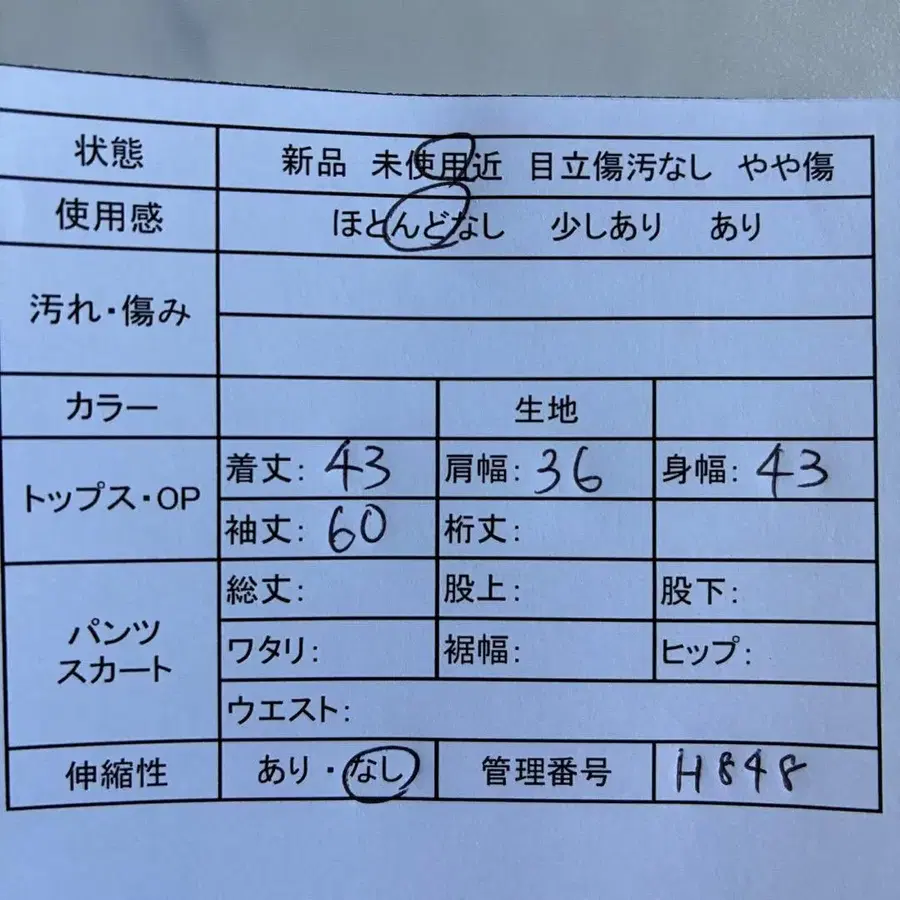 状態 新品 未使用近 目立傷汚なし やや傷
使用感 ほとんどなし 少しあり あり
汚れ・傷み
カラー 生地
トップス・OP
着丈: 43 肩幅: 36 身幅: 43
袖丈: 60 桁丈:
パンツ
スカート
総丈: 股上: 股下:
ワタリ: 裾幅: ヒップ:
ウエスト:
伸縮性 あり・なし 管理番号 H848